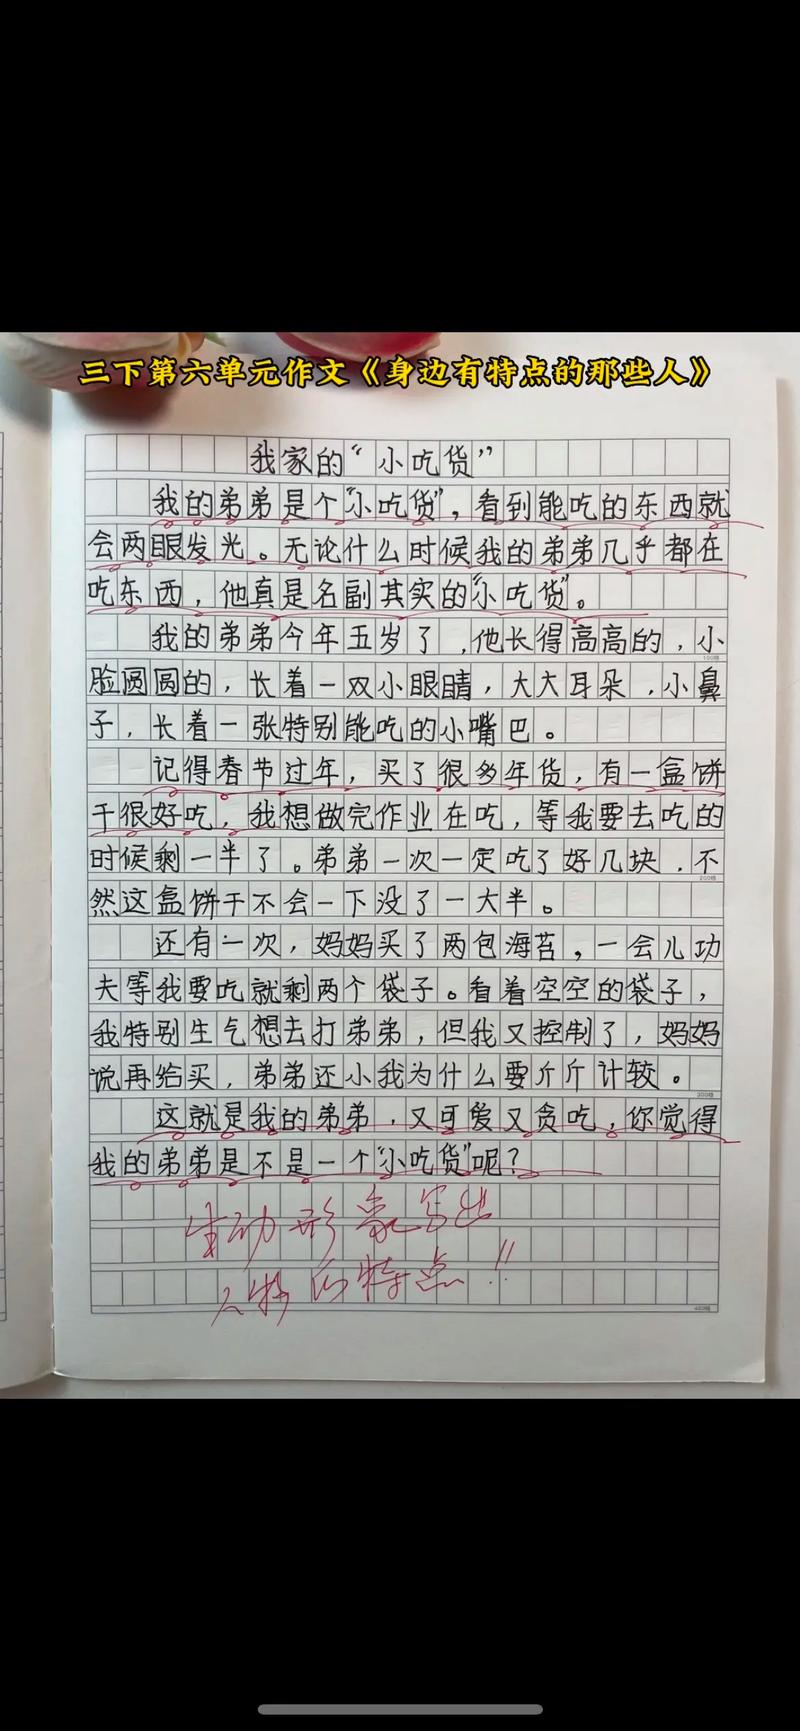 三下第六单元作文《身边有特点的那些人》
我家的“小吃货”
我的弟弟是个“小吃货”，看到能吃的东西就
会两眼发光。无论什么时候我的弟弟几乎都在
吃东西，他真是名副其实的“小吃货”。
我的弟弟今年五岁了，他长得高高的，小
脸圆圆的，长着一双小眼睛，大大耳朵，小鼻
子，长着一张特别能吃的小嘴巴。
记得春节过年，买了很多年货，有一盒饼
干很好吃，我想做完作业在吃，等我要去吃的
时候剩一半了。弟弟一次一定吃了好几块，不
然这盒饼干不会一下没了一大半。
还有一次，妈妈买了两包海苔，一会儿功
夫等我要吃就剩两个袋子。看着空空的袋子，
我特别生气想去打弟弟，但我又控制了，妈妈
说再给买，弟弟还小我为什么要斤斤计较。
这就是我的弟弟，又可爱又贪吃，你觉得
我的弟弟是不是一个“小吃货”呢？
生动形象写出
人物的特点！！
100格
200格
300格
400格